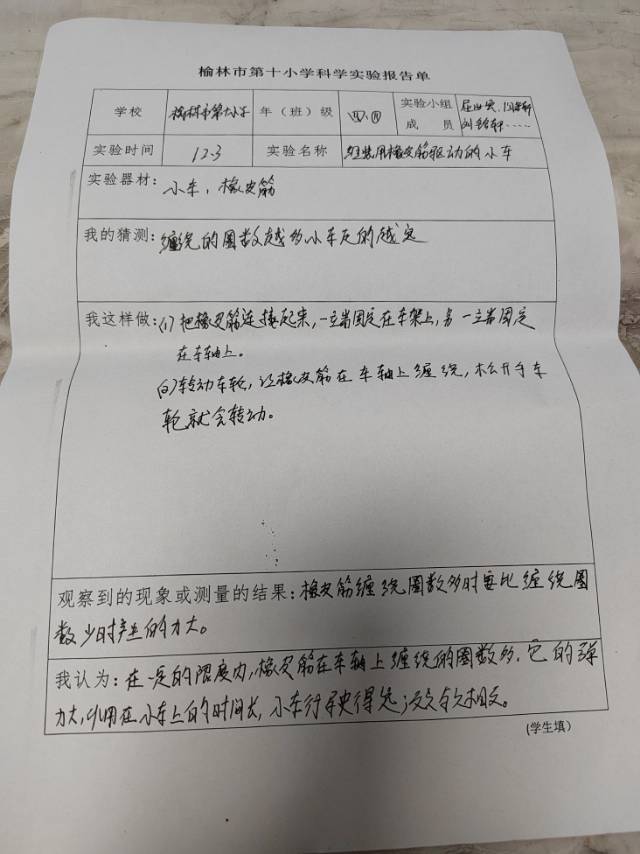 榆林市第十小学科学实验报告单
学校 榆林市第十小学 年（班）级 四、四 实验小组成员
实验时间 12.3 实验名称 组装用橡皮筋驱动的小车
实验器材：小车，橡皮筋
我的猜测：缠绕的圈数越多小车走的越远
我这样做：(1)把橡皮筋连接起来，一端固定在车架上，另一端固定
在车轴上。
(2)转动车轮，让橡皮筋在车轴上缠绕，松开手车
轮就会转动。
观察到的现象或测量的结果：橡皮筋缠绕圈数多时要比缠绕圈
数少时产生的力大。
我认为：在一定的限度内，橡皮筋在车轴上缠绕的圈数多，它的弹
力大，作用在小车上的时间长，小车行驶得远；反之则相反。
(学生填）